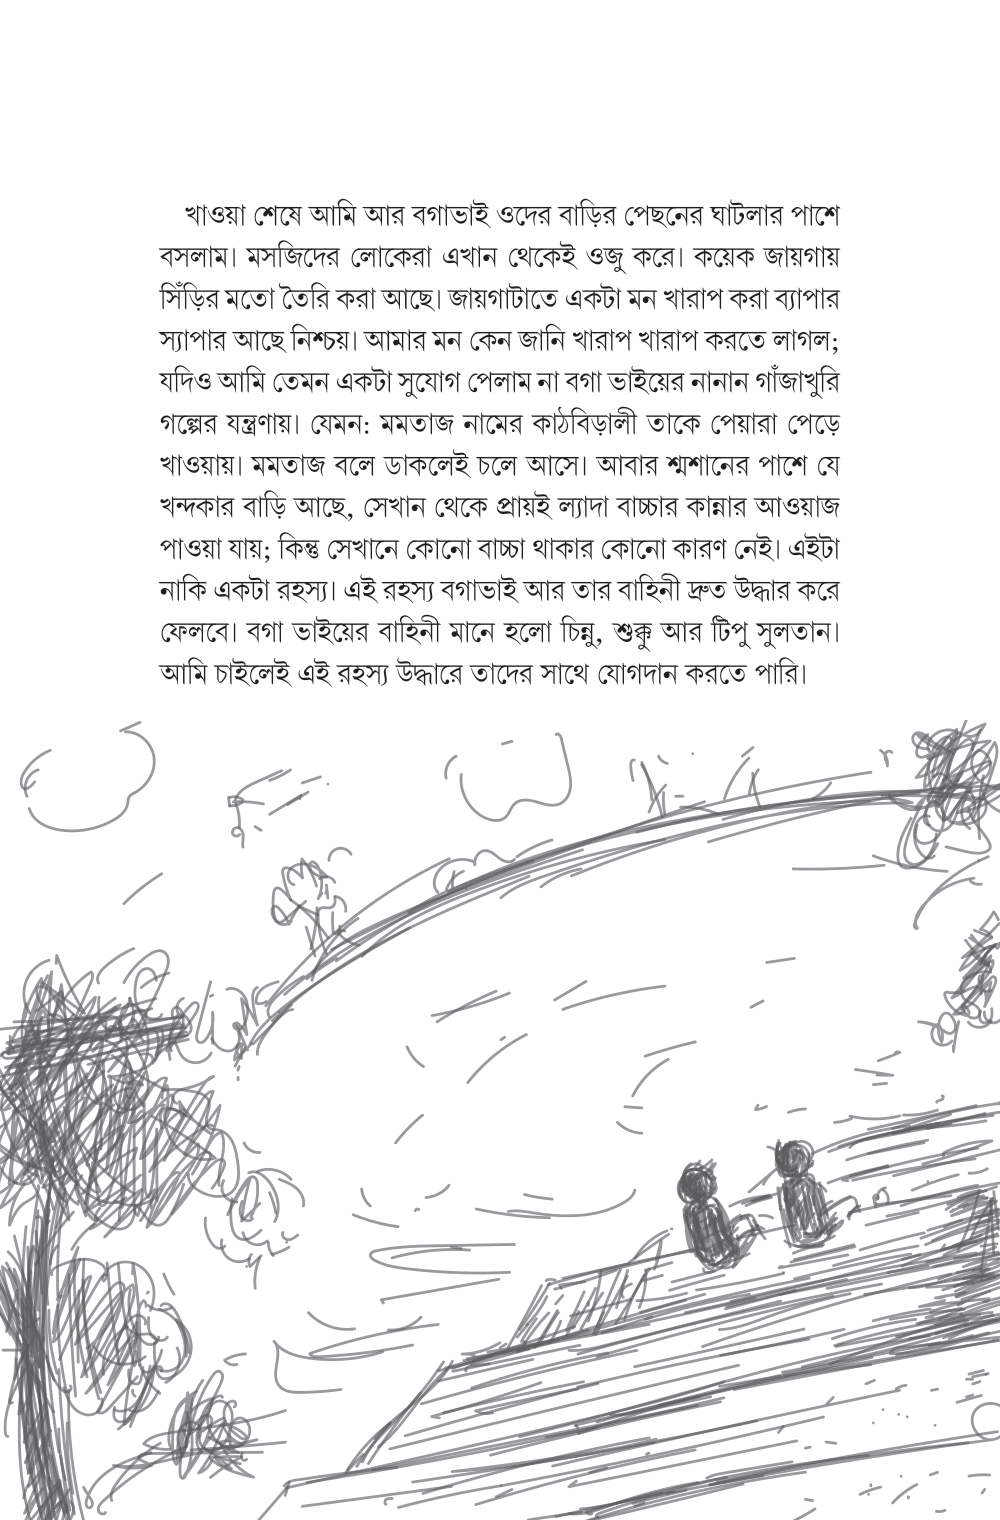 খাওয়া শেষে আমি আর বগাভাই ওদের বাড়ির পেছনের ঘাটলার পাশে
বসলাম। মসজিদের লোকেরা এখান থেকেই ওজু করে। কয়েক জায়গায়
সিঁড়ির মতো তৈরি করা আছে। জায়গাটাতে একটা মন খারাপ করা ব্যাপার
স্যাপার আছে নিশ্চয়। আমার মন কেন জানি খারাপ খারাপ করতে লাগল;
যদিও আমি তেমন একটা সুযোগ পেলাম না বগা ভাইয়ের নানান গাঁজাখুরি
গল্পের যন্ত্রণায়। যেমন: মমতাজ নামের কাঠবিড়ালী তাকে পেয়ারা পেড়ে
খাওয়ায়। মমতাজ বলে ডাকলেই চলে আসে। আবার শ্মশানের পাশে যে
খন্দকার বাড়ি আছে, সেখান থেকে প্রায়ই ল্যাদা বাচ্চার কান্নার আওয়াজ
পাওয়া যায়; কিন্তু সেখানে কোনো বাচ্চা থাকার কোনো কারণ নেই। এইটা
নাকি একটা রহস্য। এই রহস্য বগাভাই আর তার বাহিনী দ্রুত উদ্ধার করে
ফেলবে। বগা ভাইয়ের বাহিনী মানে হলো চিন্নু, শুক্কু আর টিপু সুলতান।
আমি চাইলেই এই রহস্য উদ্ধারে তাদের সাথে যোগদান করতে পারি।